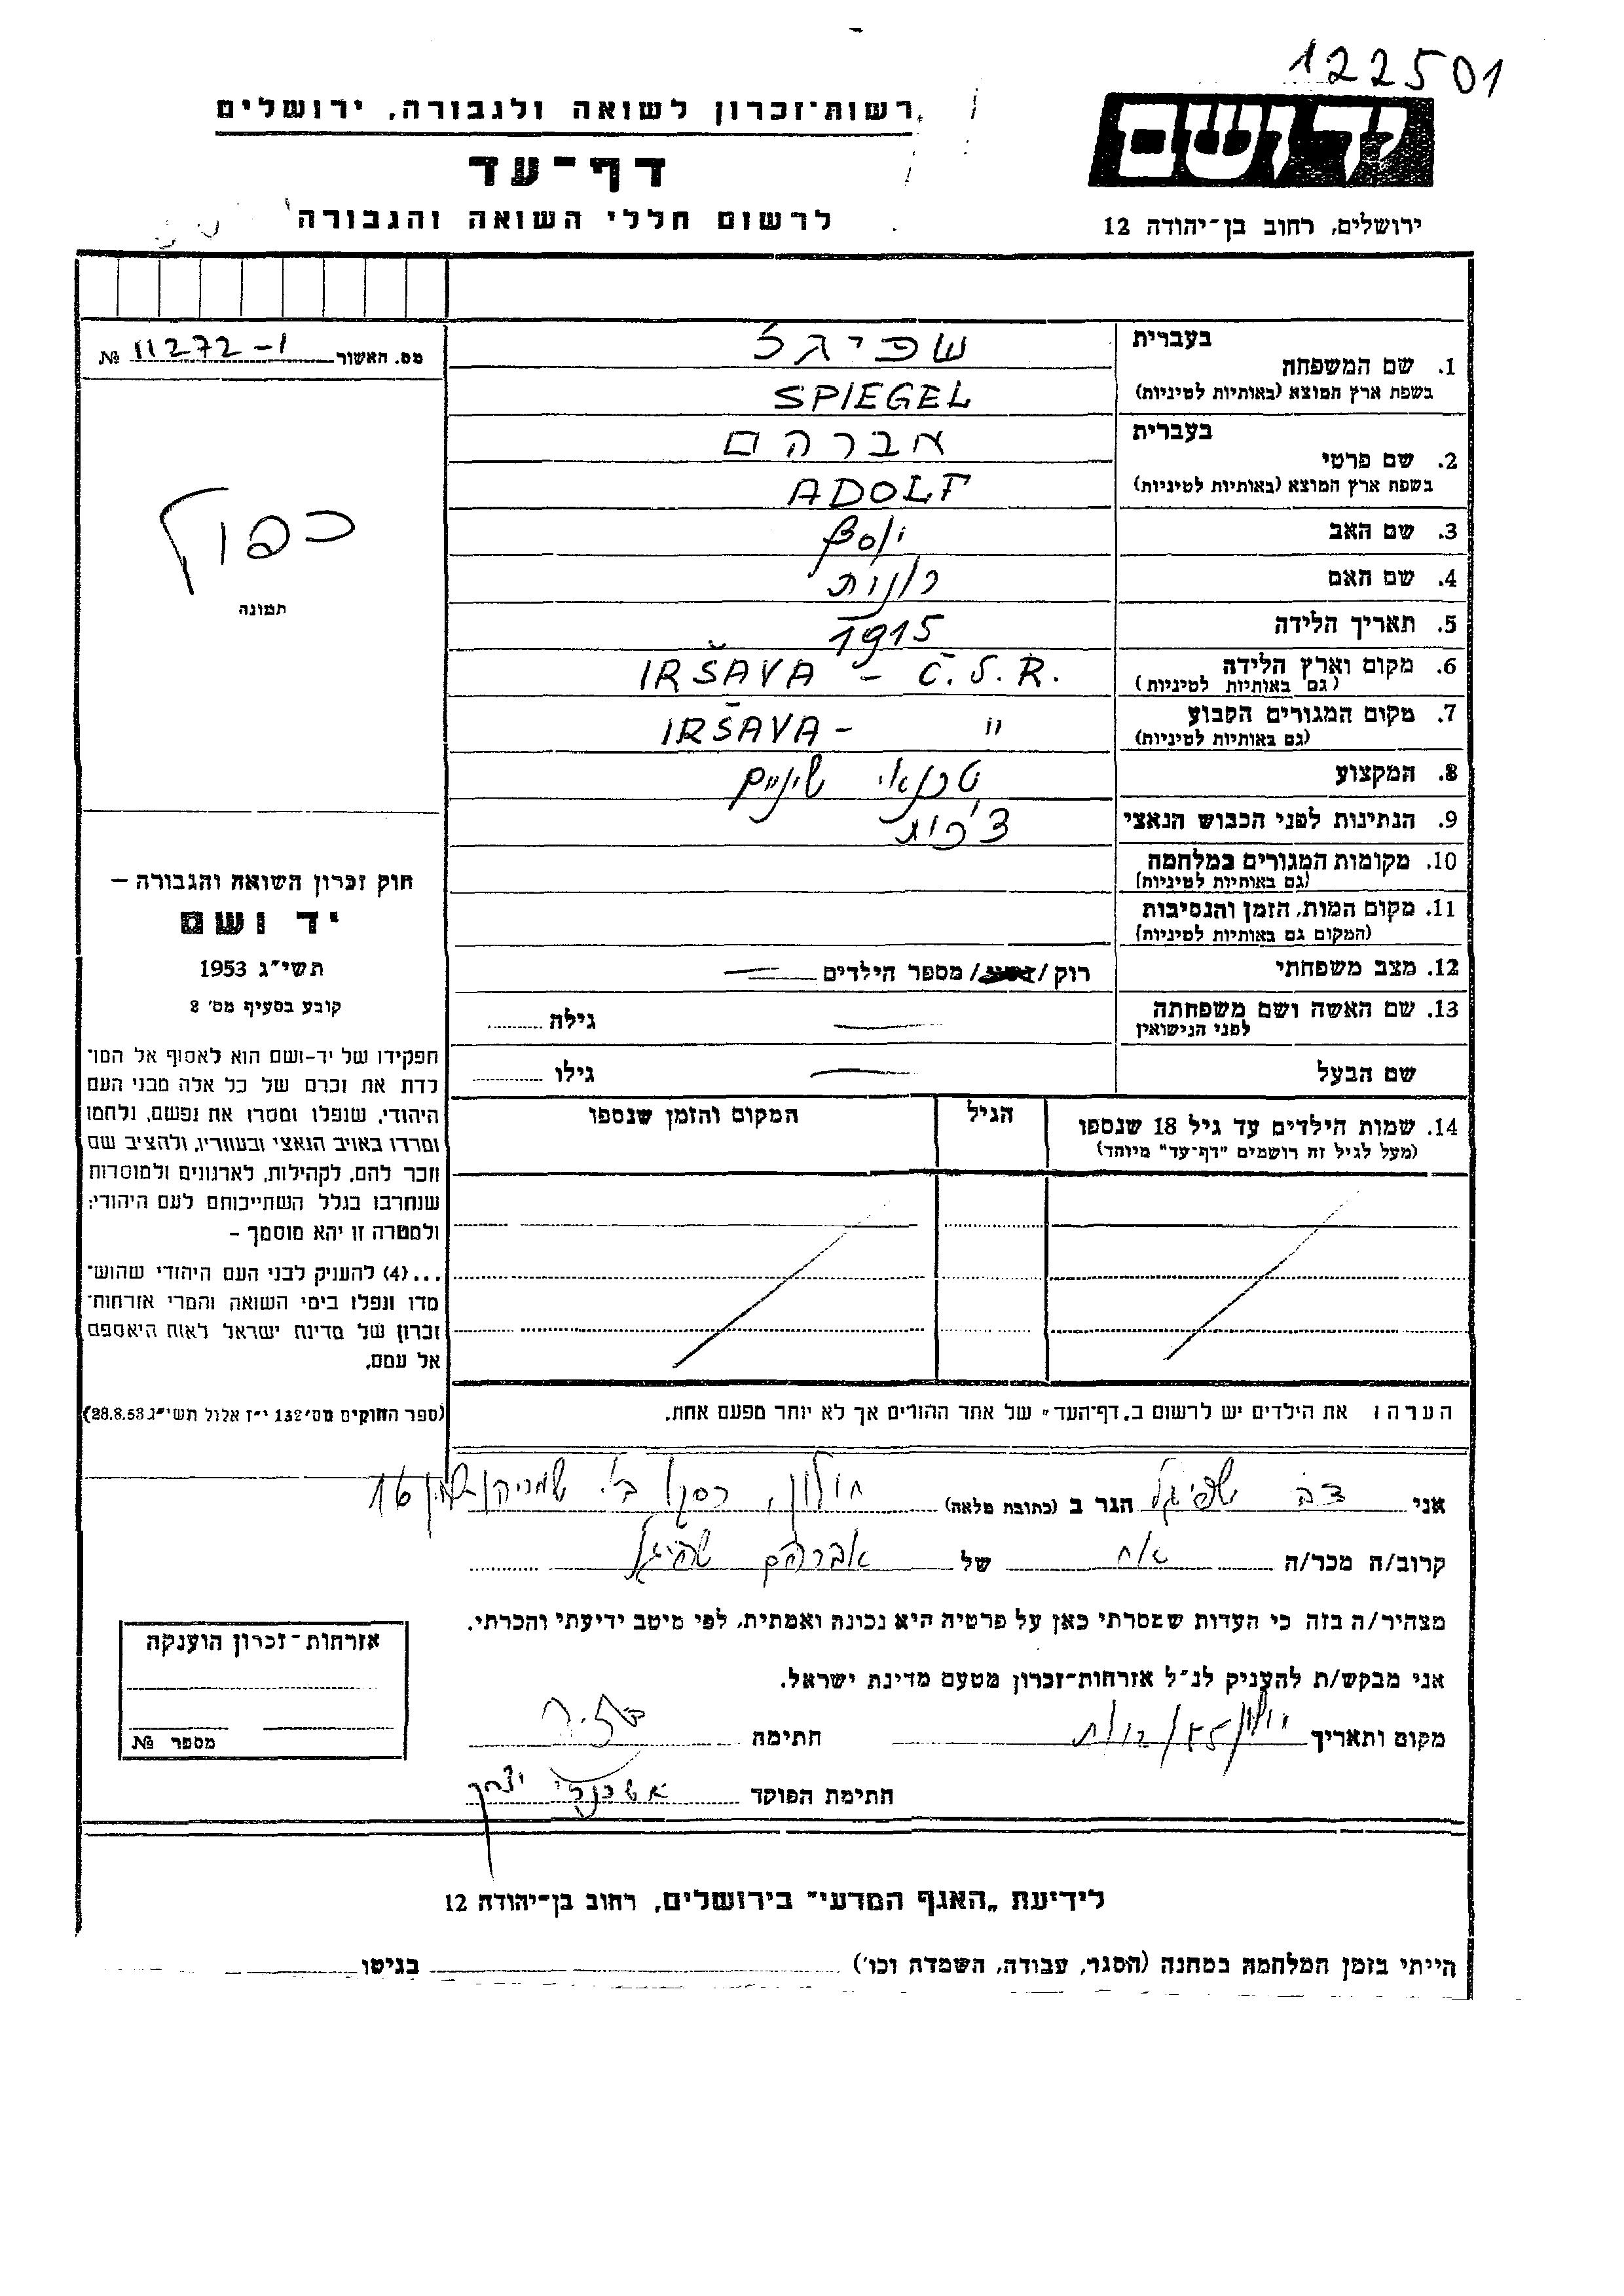 122501
רשות־זכרון לשואה ולגבורה, ירושלים
דף־עד
לרשום חללי השואה והגבורה
יד ושם
ירושלים, רחוב בן־יהודה 12
מס. האשור 11272-1 №
תמונה
כפול
בעברית שפיגל
1. שם המשפחה
בשפת ארץ המוצא (באותיות לטיניות) SPIEGEL
בעברית אברהם
2. שם פרטי
בשפת ארץ המוצא (באותיות לטיניות) ADOLF
3. שם האב יוסף
4. שם האם
5. תאריך הלידה 1915
6. מקום וארץ הלידה IRŠAVA – Č.S.R.
(גם באותיות לטיניות)
7. מקום המגורים הקבוע IRŠAVA – "
(גם באותיות לטיניות)
8. המקצוע טכנאי שיניים
9. הנתינות לפני הכבוש הנאצי צ'כית
10. מקומות המגורים במלחמה
(גם באותיות לטיניות)
11. מקום המות, הזמן והנסיבות
(המקום גם באותיות לטיניות)
12. מצב משפחתי רוק / / מספר הילדים —
13. שם האשה ושם משפחתה — גילה
לפני הנישואין
שם הבעל — גילו
14. שמות הילדים עד גיל 18 שנספו הגיל המקום והזמן שנספו
(מעל לגיל זה רושמים "דף־עד" מיוחד)
הערה: את הילדים יש לרשום ב„דף־העד" של אחד ההורים אך לא יותר מפעם אחת.
חוק זכרון השואה והגבורה –
יד ושם
תשי"ג 1953
קובע בסעיף מס' 2
תפקידו של יד-ושם הוא לאסוף אל המו־
לדת את זכרם של כל אלה מבני העם
היהודי, שנפלו ומסרו את נפשם, נלחמו
ומרדו באויב הנאצי ובעוזריו, ולהציב שם
וזכר להם, לקהילות, לארגונים ולמוסדות
שנחרבו בגלל השתייכותם לעם היהודי;
ולמטרה זו יהא מוסמך –
...(4) להעניק לבני העם היהודי שהוש־
מדו ונפלו בימי השואה והמרי אזרחות־
זכרון של מדינת ישראל לאות היאספם
אל עמם.
(ספר החוקים מס' 132 י"ז אלול תשי"ג 28.8.53)
אני צבי שפיגל הגר ב (כתובת מלאה) חולון, 16
קרוב/ה מכר/ה אח של אברהם שפיגל
מצהיר/ה בזה כי העדות שמסרתי כאן על פרטיה היא נכונה ואמתית, לפי מיטב ידיעתי והכרתי.
אני מבקש/ת להעניק לנ"ל אזרחות־זכרון מטעם מדינת ישראל.
מקום ותאריך חתימה
חתימת הפוקד אשכנזי יצחק
אזרחות־זכרון הוענקה
מספר №
לידיעת „האגף המדעי" בירושלים, רחוב בן־יהודה 12
הייתי בזמן המלחמה במחנה (הסגר, עבודה, השמדה וכו') בגיטו